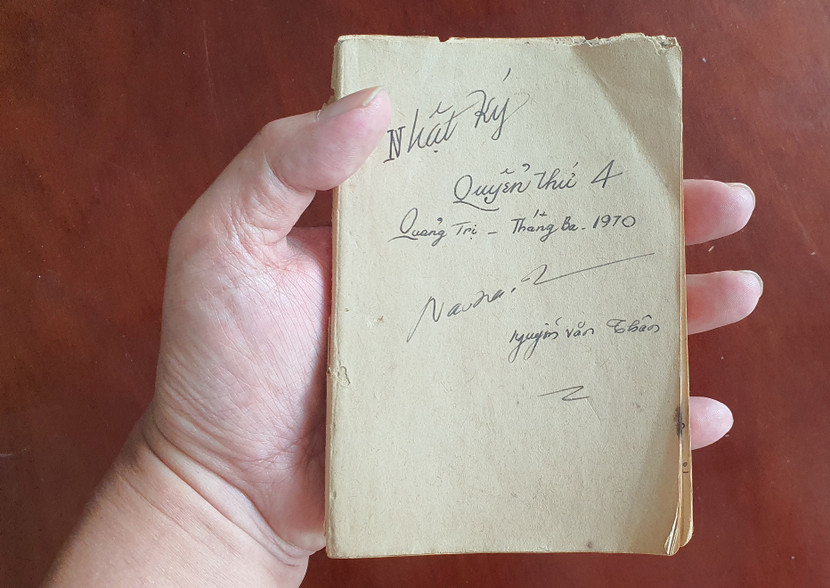 Nhật Ký
Quyển thứ 4
Quảng Trị - Tháng Ba. 1970
Nguyễn văn Thân